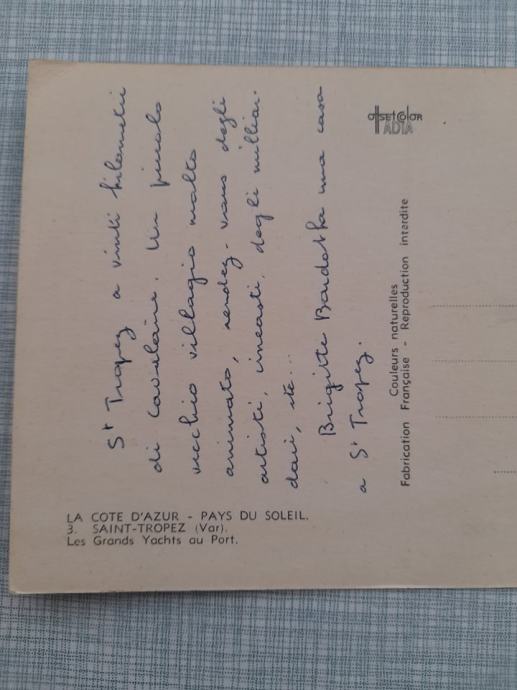 St Tropez a vinti kilometri
di Cavalaire. Un piccolo
vecchio villagio molto
animato, rendez-vous degli
artisti, cineasti, degli milliar-
dari, etc...
Brigitte Bardot ha una casa
a St Tropez.
LA COTE D'AZUR - PAYS DU SOLEIL.
3. SAINT-TROPEZ (Var).
Les Grands Yachts au Port.
offset Color
ADIA
Couleurs naturelles
Fabrication Française - Reproduction interdite